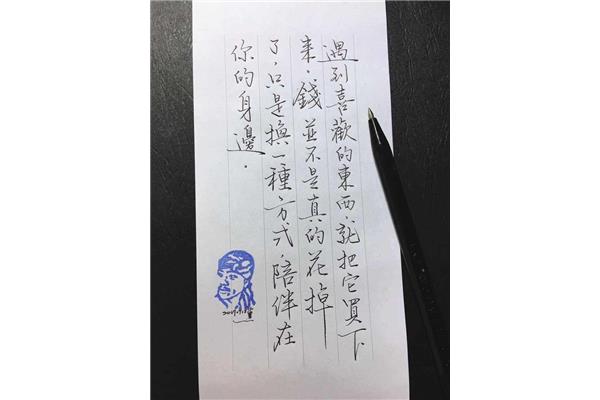 遇到喜歡的東西，就把它買下
來，錢並不是真的花掉
了，只是換一種方式，陪伴在
你的身邊．